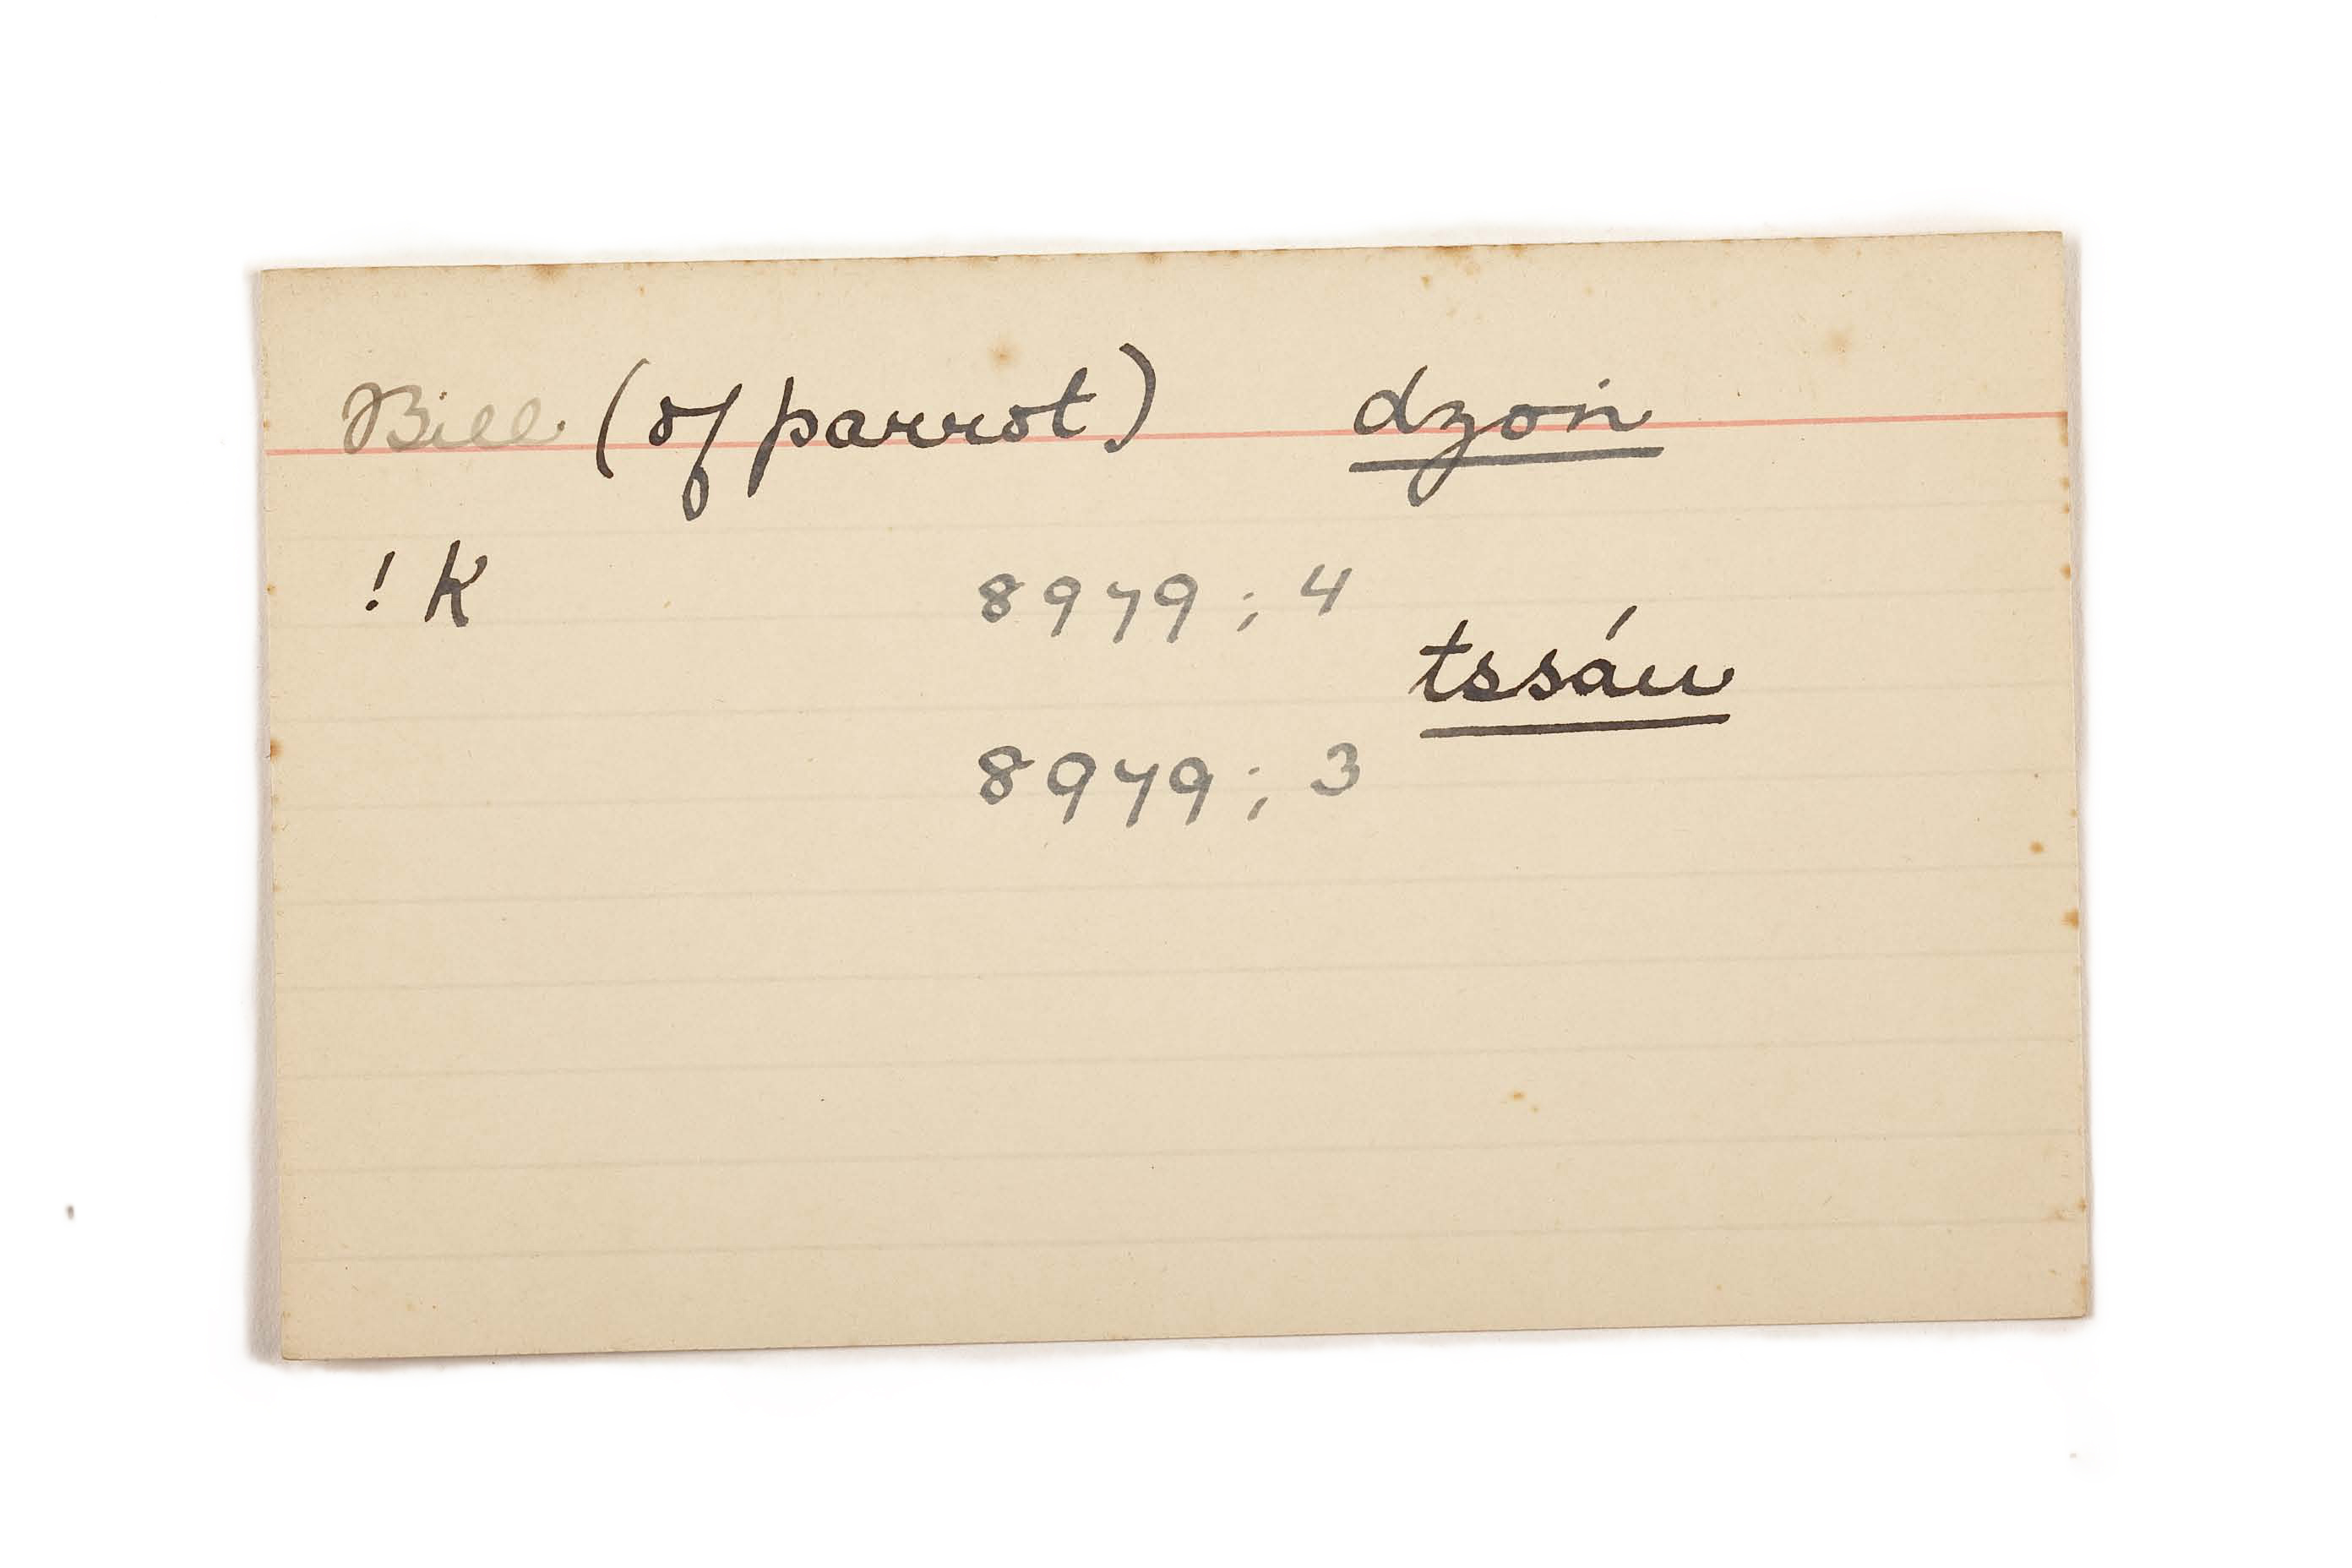 Bill (of parrot) dzoṅ
! k 8979; 4
tssáu
8979; 3